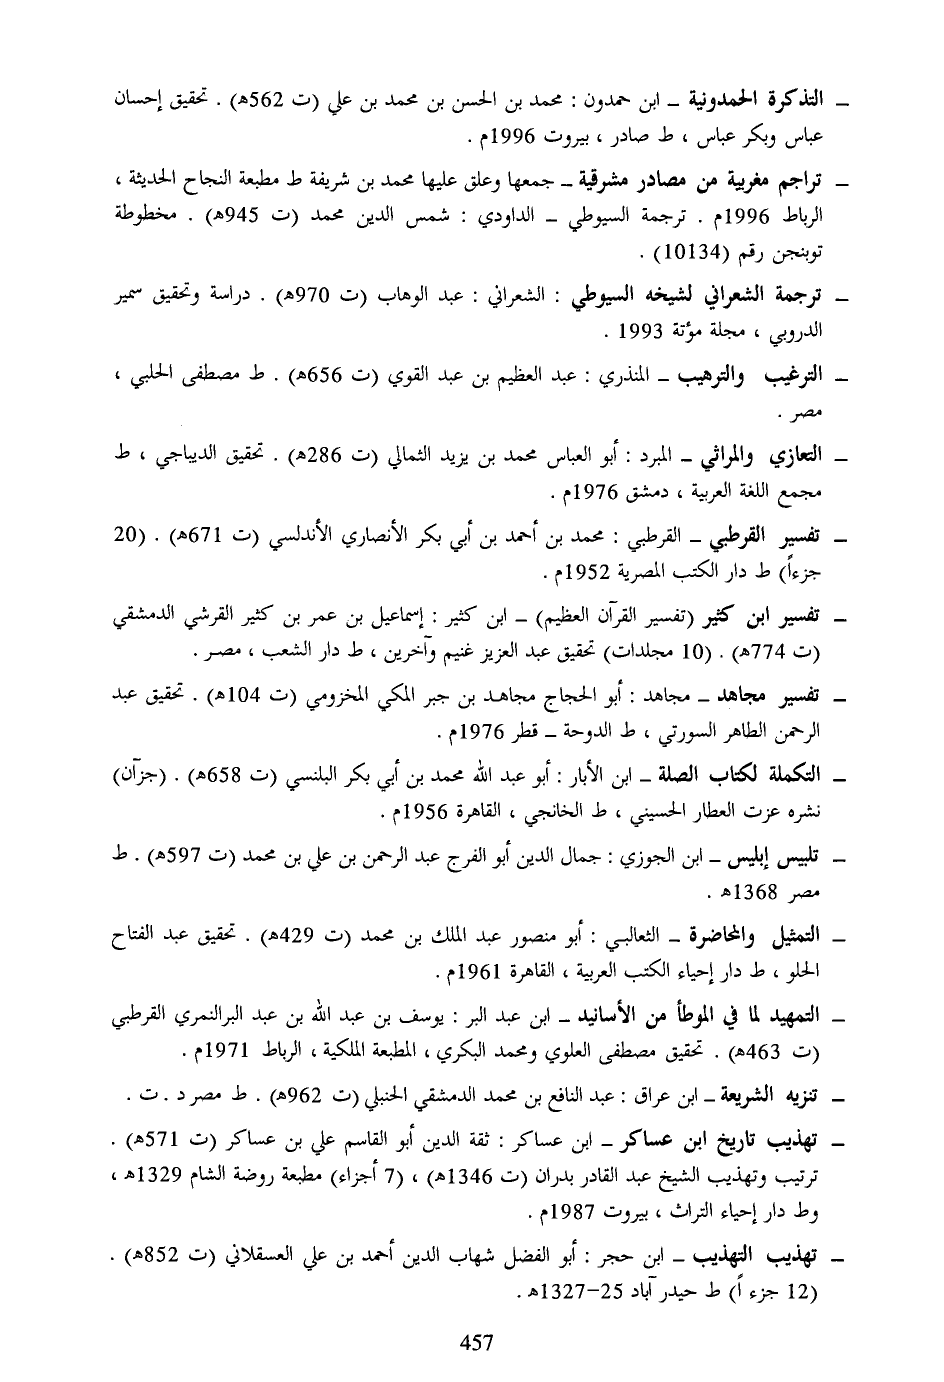 – التذكرة الحمدونية – ابن حمدون : محمد بن الحسن بن محمد بن علي (ت 562ه) . تحقيق إحسان
عباس وبكر عباس ، ط صادر ، بيروت 1996م .
– تراجم مغربية من مصادر مشرقية – جمعها وعلق عليها محمد بن شريفة ط مطبعة النجاح الحديثة ،
الرباط 1996م . ترجمة السيوطي – الداودي : شمس الدين محمد (ت 945ه) . مخطوطة
توبنجن رقم (10134) .
– ترجمة الشعراني لشيخه السيوطي : الشعراني : عبد الوهاب (ت 970ه) . دراسة وتحقيق سمير
الدروبي ، مجلة مؤتة 1993 .
– الترغيب والترهيب – المنذري : عبد العظيم بن عبد القوي (ت 656ه) . ط مصطفى الحلبي ،
مصر .
– التعازي والمراثي – المبرد : أبو العباس محمد بن يزيد الثمالي (ت 286ه) . تحقيق الديباجي ، ط
مجمع اللغة العربية ، دمشق 1976م .
– تفسير القرطبي – القرطبي : محمد بن أحمد بن أبي بكر الأنصاري الأندلسي (ت 671ه) . (20
جزءاً) ط دار الكتب المصرية 1952م .
– تفسير ابن كثير (تفسير القرآن العظيم) – ابن كثير : إسماعيل بن عمر بن كثير القرشي الدمشقي
(ت 774ه) . (10 مجلدات) تحقيق عبد العزيز غنيم وآخرين ، ط دار الشعب ، مصر .
– تفسير مجاهد – مجاهد : أبو الحجاج مجاهد بن جبر المكي المخزومي (ت 104ه) . تحقيق عبد
الرحمن الطاهر السورتي ، ط الدوحة – قطر 1976م .
– التكملة لكتاب الصلة – ابن الأبار : أبو عبد الله محمد بن أبي بكر البلنسي (ت 658ه) . (جزآن)
نشره عزت العطار الحسيني ، ط الخانجي ، القاهرة 1956م .
– تلبيس إبليس – ابن الجوزي : جمال الدين أبو الفرج عبد الرحمن بن علي بن محمد (ت 597ه) . ط
مصر 1368ه .
– التمثيل والمحاضرة – الثعالبي : أبو منصور عبد الملك بن محمد (ت 429ه) . تحقيق عبد الفتاح
الحلو ، ط دار إحياء الكتب العربية ، القاهرة 1961م .
– التمهيد لما في الموطأ من الأسانيد – ابن عبد البر : يوسف بن عبد الله بن عبد البرالنمري القرطبي
(ت 463ه) . تحقيق مصطفى العلوي ومحمد البكري ، المطبعة الملكية ، الرباط 1971م .
– تنزيه الشريعة – ابن عراق : عبد النافع بن محمد الدمشقي الحنبلي (ت 962ه) . ط مصر د . ت .
– تهذيب تاريخ ابن عساكر – ابن عساكر : ثقة الدين أبو القاسم علي بن عساكر (ت 571ه) .
ترتيب وتهذيب الشيخ عبد القادر بدران (ت 1346ه) ، (7 أجزاء) مطبعة روضة الشام 1329ه ،
وط دار إحياء التراث ، بيروت 1987م .
– تهذيب التهذيب – ابن حجر : أبو الفضل شهاب الدين أحمد بن علي العسقلاني (ت 852ه) .
(12 جزء اً) ط حيدر آباد 25–1327ه .
457